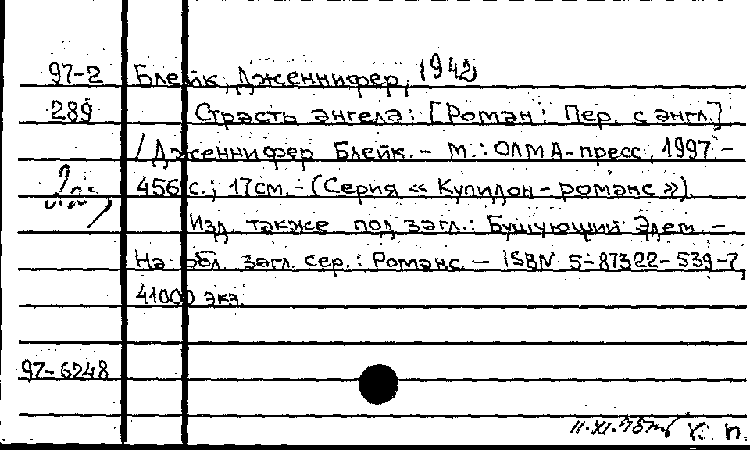 97-2 Блейк, Дженнифер, 1942
289 Страсть ангела: [Роман: Пер. с англ.]
/ Дженнифер Блейк. - М.: ОЛМА-пресс, 1997. -
456 с.; 17см. - (Серия « Купидон - романс »).
Изд. также под загл.: Бушующий Эдем. -
На обл. загл. сер.: Романс. - ISBN 5-87322-539-7,
41000 экз.
97-6248
К. п.